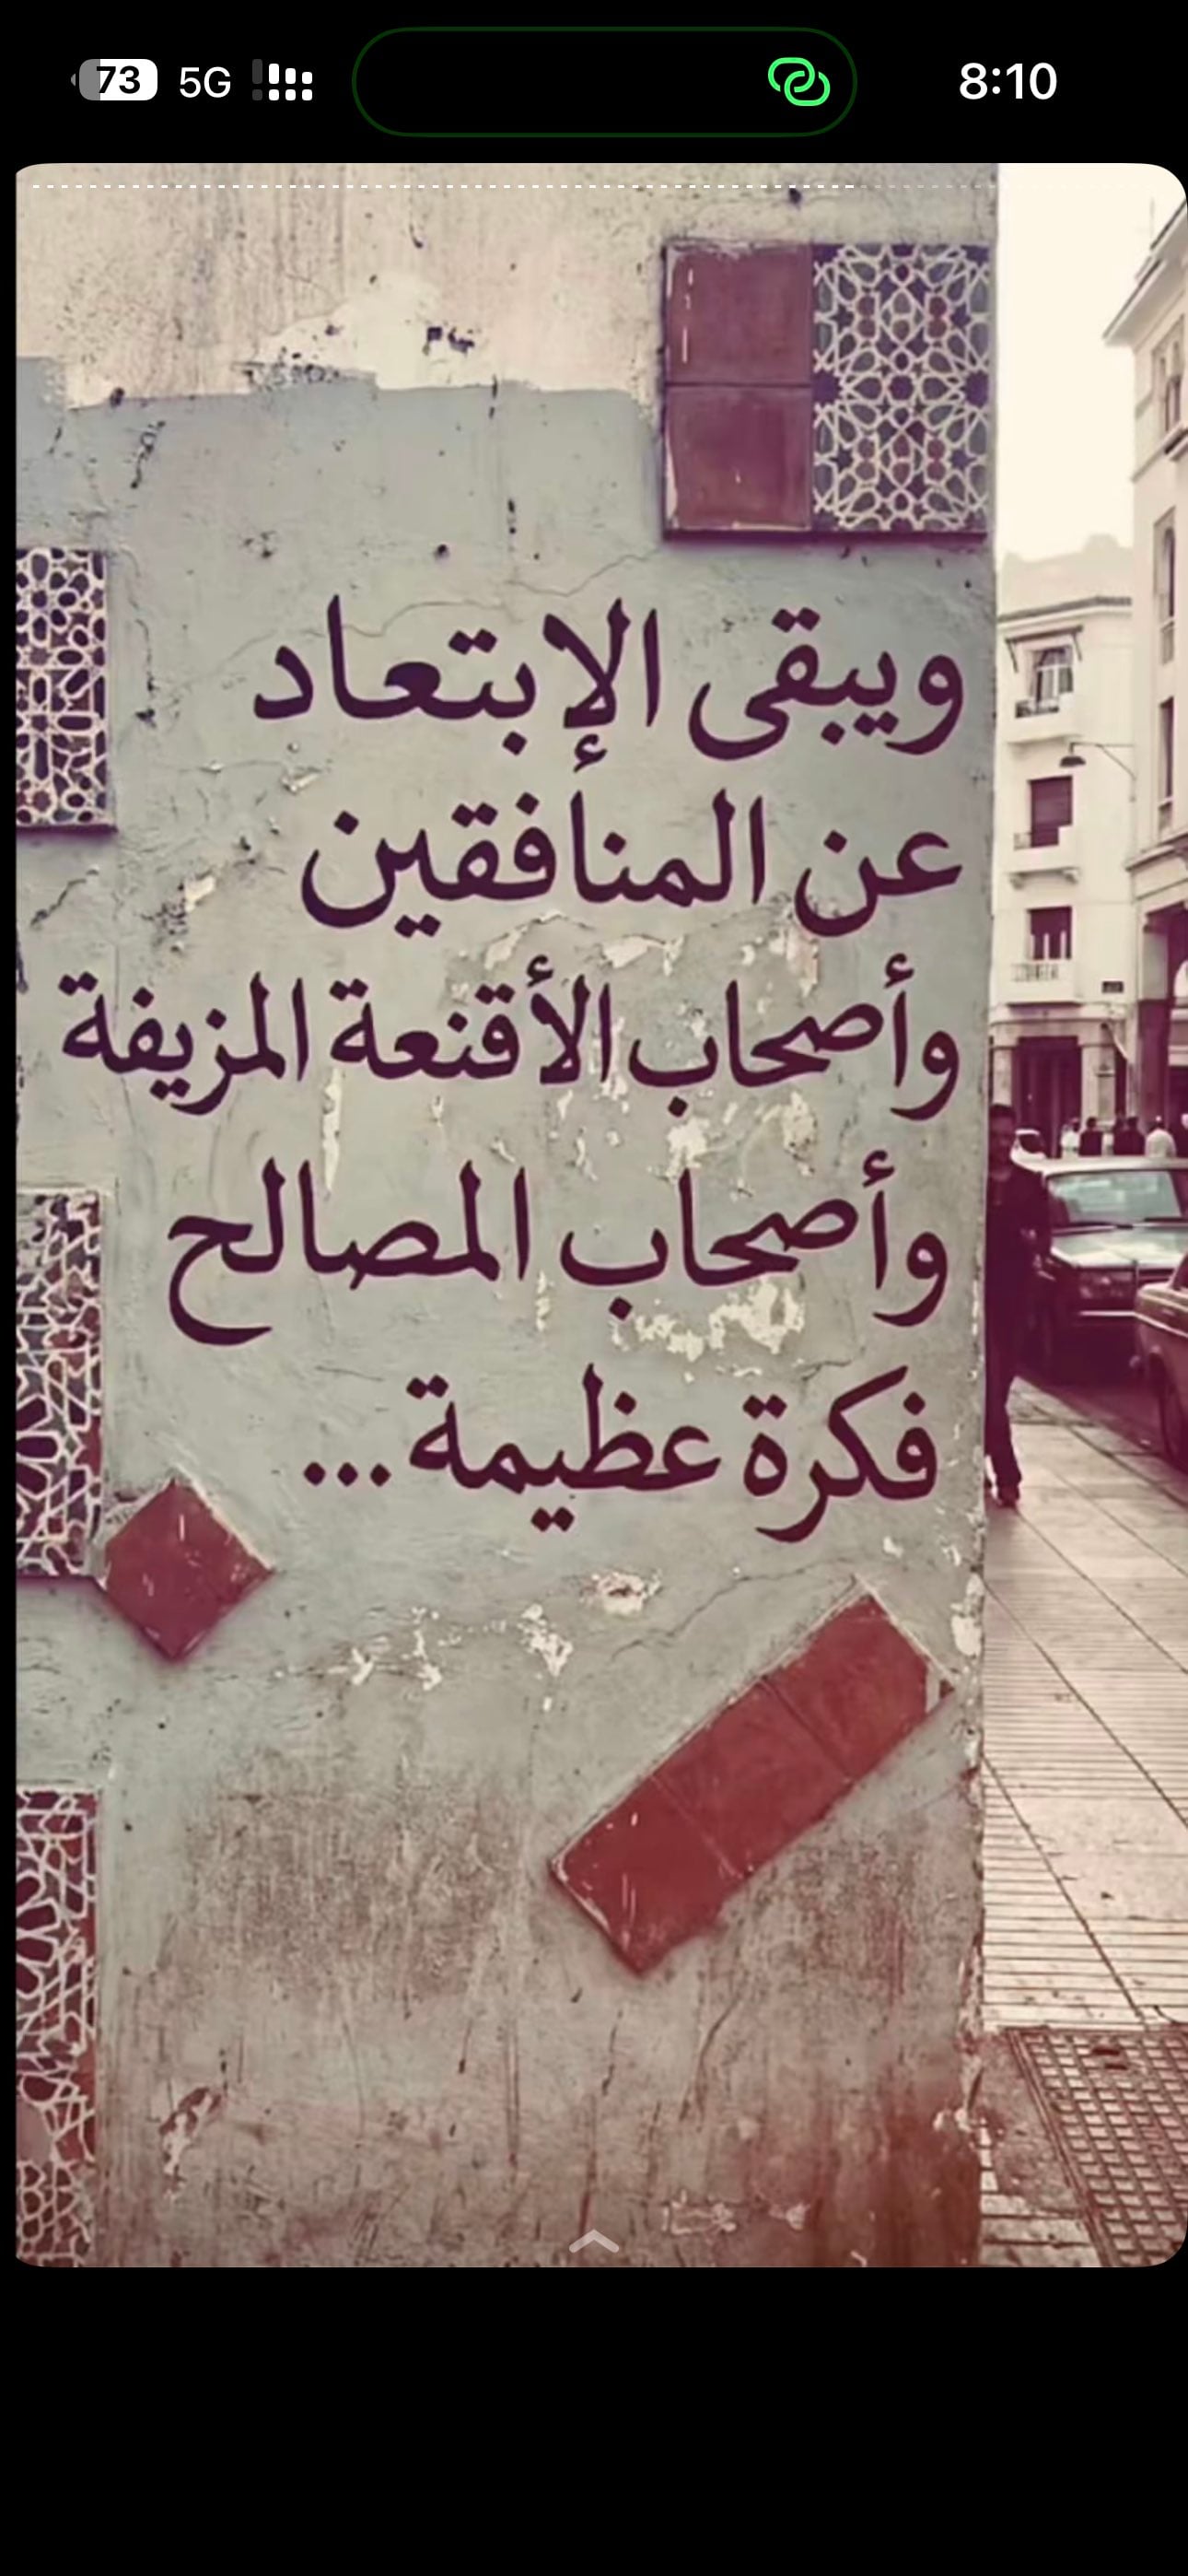 73 5G 8:10
ويبقى الإبتعاد
عن المنافقين
وأصحاب الأقنعة المزيفة
وأصحاب المصالح
فكرة عظيمة...